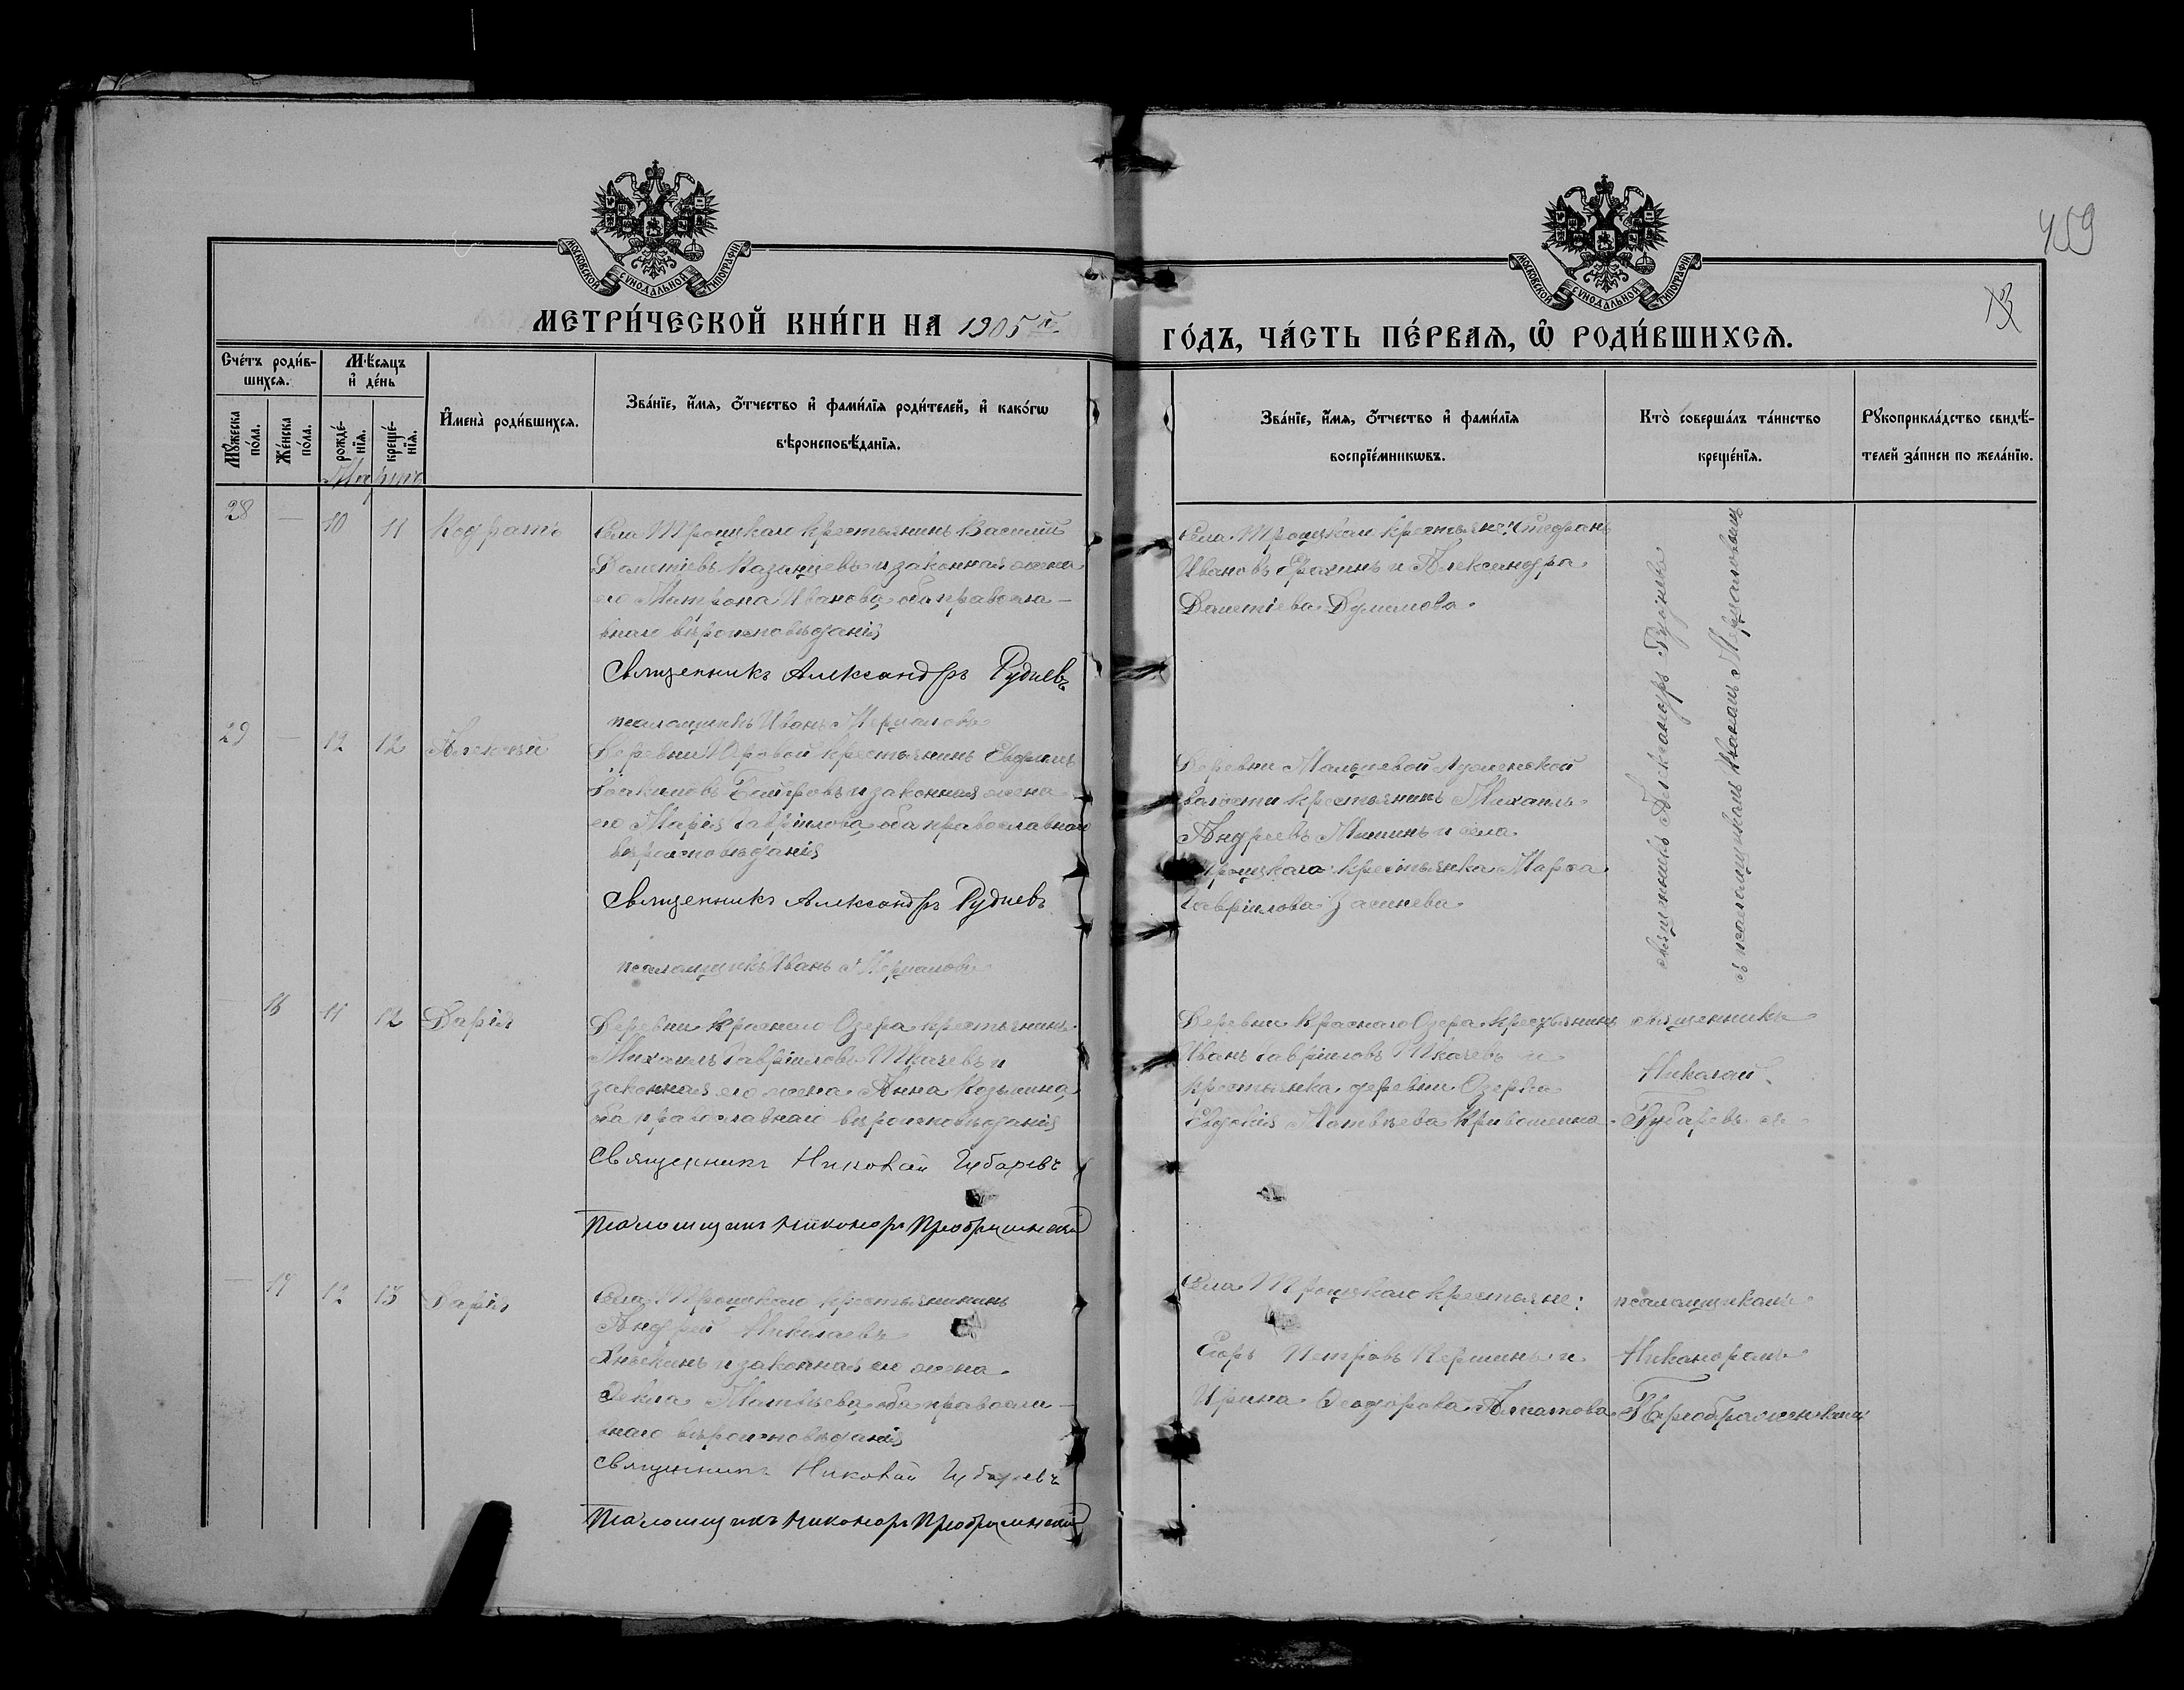 459
13
МОСКОВСКОЙ СѴНОДАЛЬНОЙ ТИПОГРАФІИ
МОСКОВСКОЙ СѴНОДАЛЬНОЙ ТИПОГРАФІИ
МЕТРИ́ЧЕСКОЙ КНИ́ГИ НА 1905й
ГО́ДЪ, ЧА́СТЬ ПЕ́РВАЯ, Ѽ РОДИ́ВШИХСЯ.
Сче́тъ роди́в-
шихся.
Мѣ́сяцъ
и҆ де́нь
Мꙋ́жеска
по́ла.
Же́нска
по́ла.
рожде́-
нїя.
креще́-
нїя.
И҆мена̀ роди́вшихся.
Зва́нїе, и҆́мя, ѻ҆́тчество и҆ фами́лїя роди́телей, и҆ како́гѡ
вѣроисповѣ́данїя.
Зва́нїе, и҆́мя, ѻ҆́тчество и҆ фами́лїя
воспрїе́мникѡвъ.
Кто̀ соверша́лъ та́инство
креще́нїя.
Рꙋкоприкла́дство свидѣ́-
телей за́писи по жела́нїю.
Марта
28 — 10 11 Кодратъ
Села Троицкаго крестьянинъ Василій
Далетіевъ Казанцевъ и законная жена
его Матрона Иванова, оба правосла-
внаго вѣроисповѣданія
Священникъ Александръ Рудневъ
псаломщикъ Иванъ Мерцаловъ
Села Троицкаго крестьяне: Стефанъ
Ивановъ Ерахинъ и Александра
Далетіева
священникъ Александръ Рудневъ
съ псаломщикомъ Иваномъ Мерцаловымъ
29 — 12 12 Алексій
Деревни Юровой крестьянинъ Евфимъ
Іоакимовъ и законная жена
его Марія Гавріилова, оба православнаго
вѣроисповѣданія
Священникъ Александръ Рудневъ
псаломщикъ Иванъ Мерцаловъ
Деревни Мальцевой
волости крестьянинъ Михаилъ
Андреевъ и села
Троицкаго крестьянка Марѳа
Гавріилова
— 16 11 12 Дарія
Деревни Краснаго Озера крестьянинъ
Михаилъ Гавріиловъ Ткачевъ и
законная его жена Анна Козьмина,
оба православнаго вѣроисповѣданія
Священникъ Николай Губаревъ
Псаломщикъ Никоноръ Преображенскій
Деревни Краснаго Озера крестьянинъ
Иванъ Гавріиловъ Ткачевъ и
крестьянка деревни Озерки
Евдокія Матвѣева
священникъ
Николай
Губаревъ съ
— 17 12 13 Дарія
Села Троицкаго крестьянинъ
Андрей Николаевъ
и законная его жена
Ѳекла Матвѣева, оба правосла-
внаго вѣроисповѣданія
Священникъ Николай Губаревъ
Псаломщикъ Никоноръ Преображенскій
Села Троицкаго крестьяне:
Егоръ Петровъ и
Ирина Ѳеодорова
псаломщикомъ
Никаноромъ
Преображенскимъ